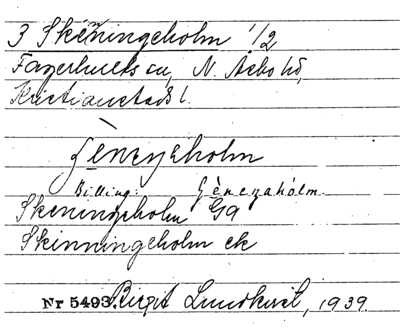 3 Skénningeholm 1/2
Fagerhults sn, N. Åsbo hd,
Kristianstads l.
jèncyeholm
Billing: Gènezahólm.
Skeningeholm G9
Skinningeholm ek
Nr 5493. Birgit Lundkvist, 1939.